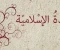 دة الإسلامية